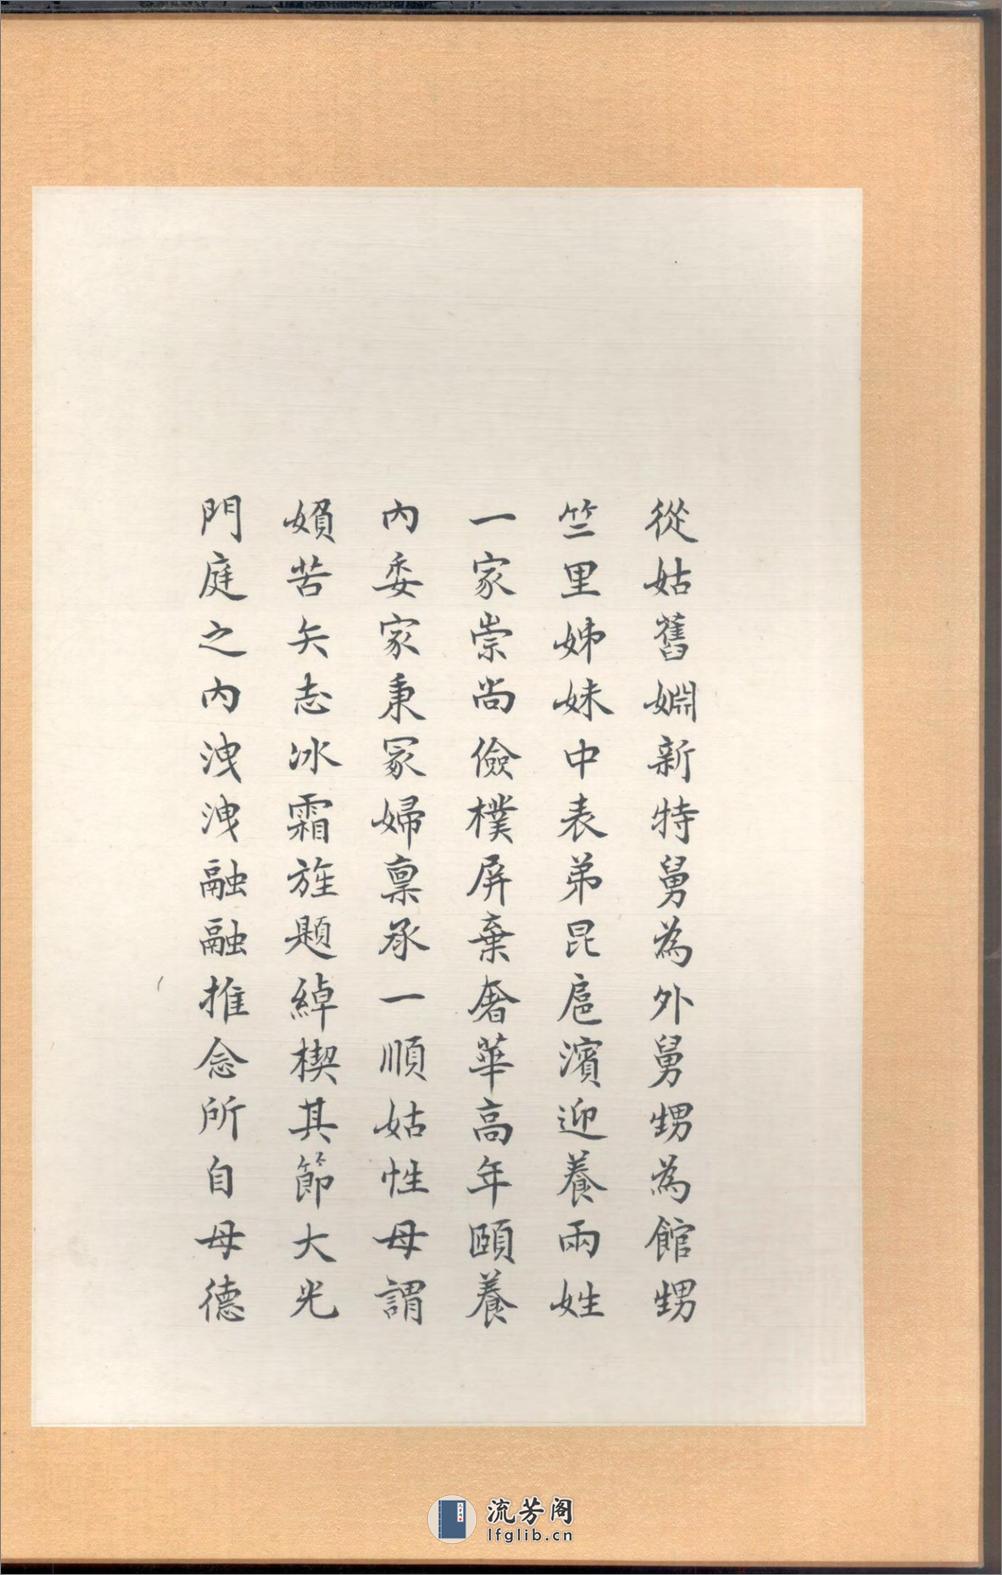 從姑舊婣新特舅為外舅甥為館甥
竺里姊妹中表弟昆扈濱迎養兩姓
一家崇尚儉樸屏棄奢華高年頤養
內委家秉冢婦稟承一順姑性母謂
嬪苦矢志冰霜旌題綽楔其節大光
門庭之內洩洩融融推念所自母德
流芳阁
lfglib.cn